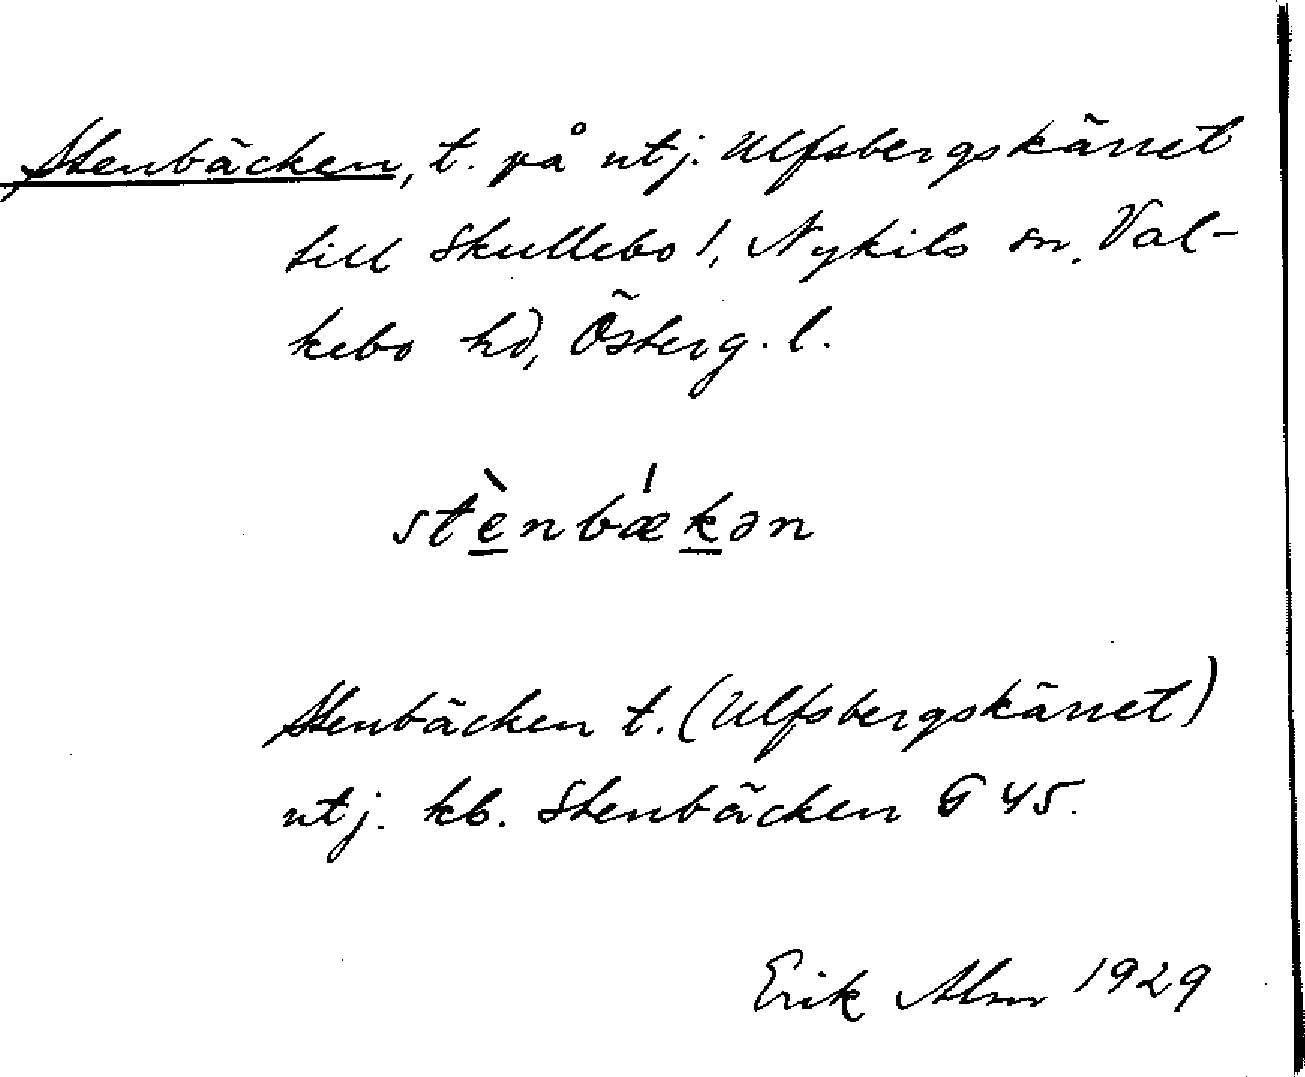 Stenbäcken, t. på utj. Ulfsbergskärret
till Skullebo 1, Nykils sn, Val-
kebo hd, Österg. l.
stènbǽkən
Stenbäcken t. (Ulfsbergskärret)
utj. kb. Stenbäcken G 45.
Erik Alm 1929